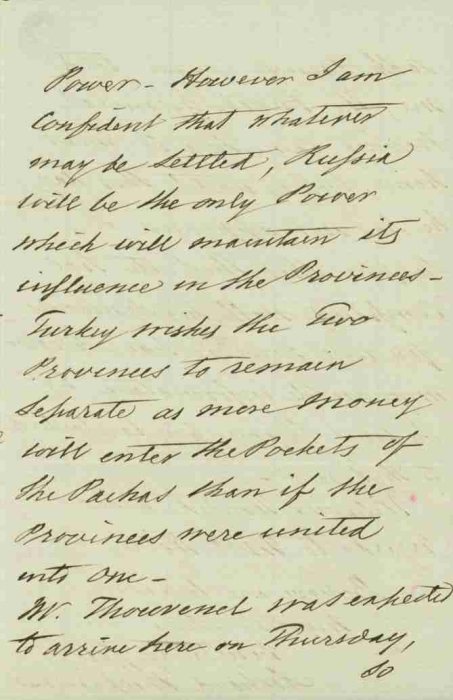 Power - However I am
confident that whatever
may be settled, Russia
will be the only Power
which will maintain its
influence in the Provinces -
Turkey wishes the Two
Provinces to remain
separate as more money
will enter the Pockets of
the Pachas than if the
Provinces were united
into one -
Mr. Thouvenel was expected
to arrive here on Thursday,
So